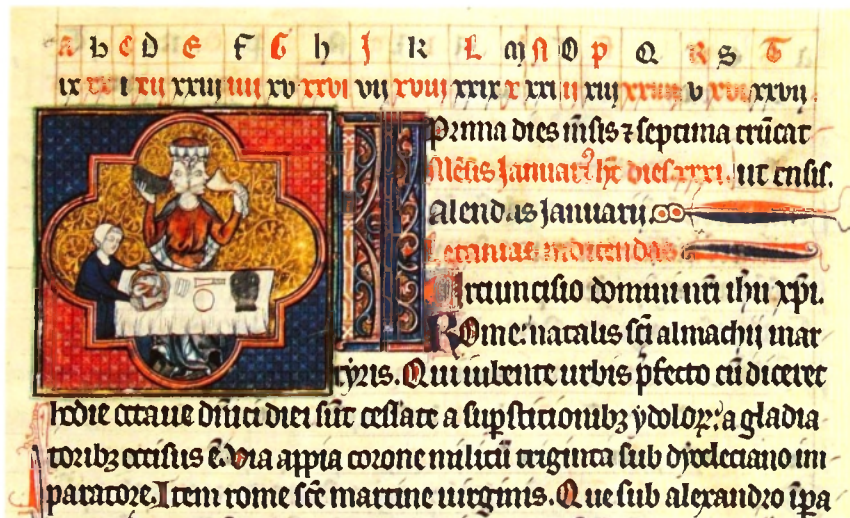 A b C D E F G h I K L M N O P Q R S T
ix i xii xxiii iiii xv xxvi vii xviii xxix x xxi ii xiii v xvi xxvii
Prima dies mẽsis ⁊ septima trũcat
Mẽsis Januari ht dies xxxi. ut ensis.
Kalendas Januarii.
Letanias indicendas
Circuncisio domini nr̃i ihu xp̃i.
Rome: natalis sc̃i almachij mar
tyris. Qui iubente urbis pfecto cũ diceret
hodie octaue dñici diei sũt cessate a supsticionibꝫ ydoloꝝ: a gladia
toribꝫ occisus ẽ. Via appia corone militũ triginta sub dyocleciano im
paratore. Item rome sc̃e martine uirginis. Que sub alexandro ipa